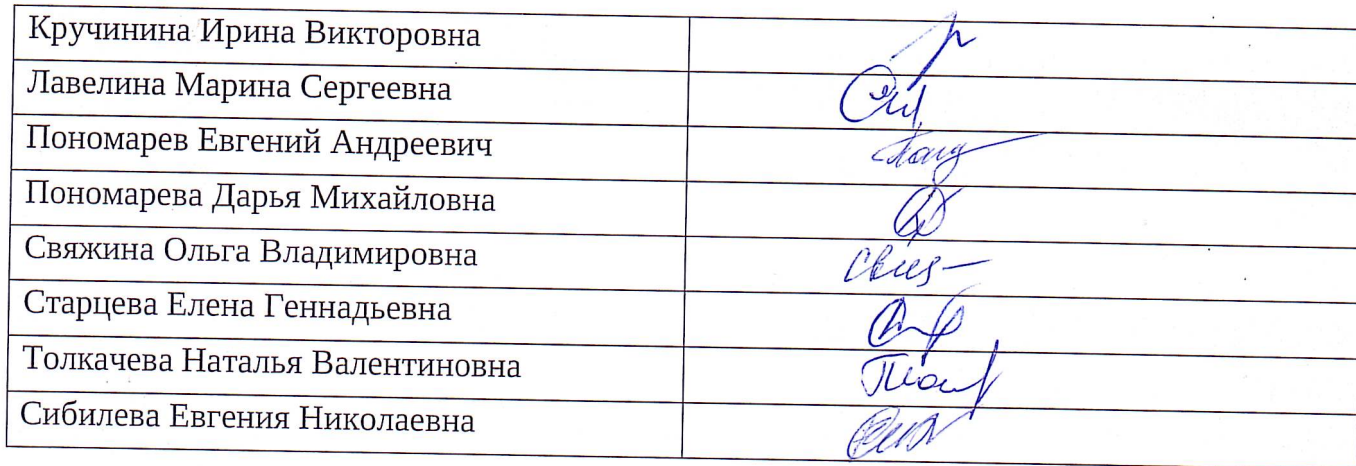 Кручинина Ирина Викторовна
Лавелина Марина Сергеевна
Пономарев Евгений Андреевич
Пономарева Дарья Михайловна
Свяжина Ольга Владимировна
Старцева Елена Геннадьевна
Толкачева Наталья Валентиновна
Сибилева Евгения Николаевна